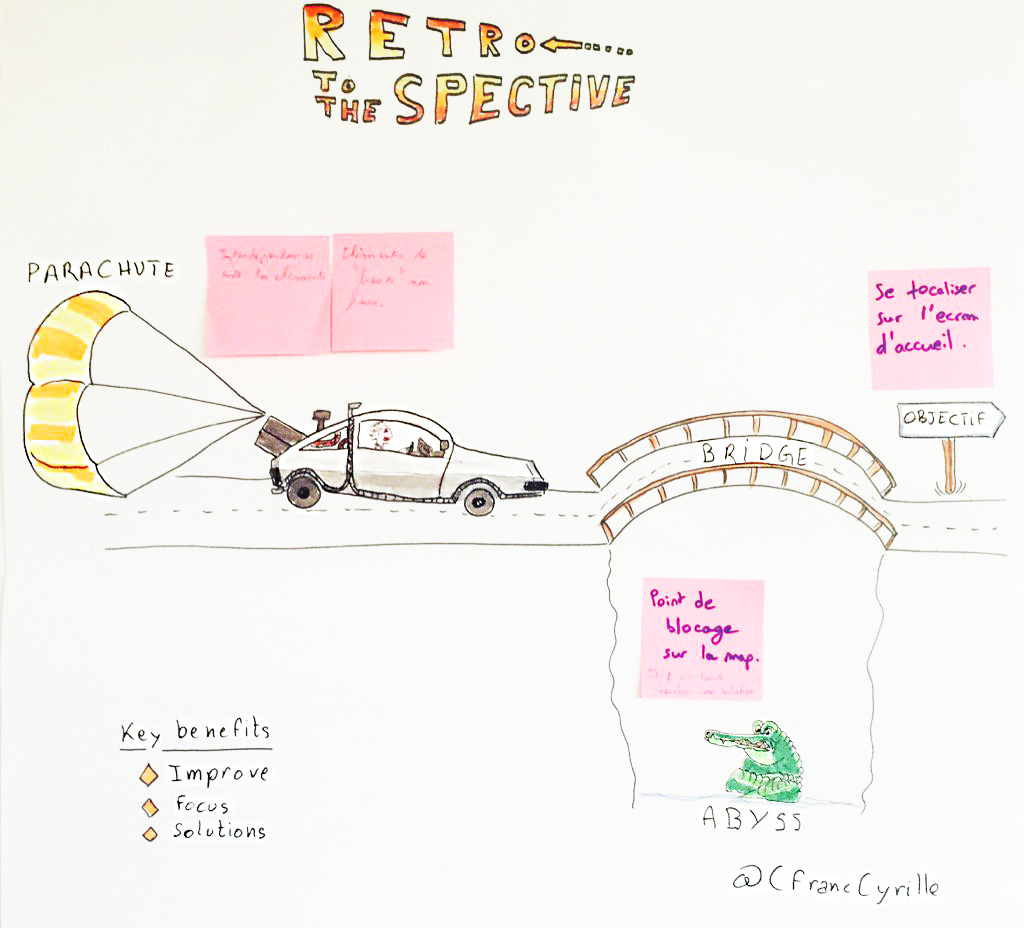 RETRO
TO THE SPECTIVE
PARACHUTE
Interdépendances
entre les éléments
Eléments de
"tests" non
Se focaliser
sur l'ecran
d'accueil.
OBJECTIF
BRIDGE
Point de
blocage
sur la map.
chercher une solution
ABYSS
Key benefits
Improve
Focus
Solutions
@CfrancCyrille